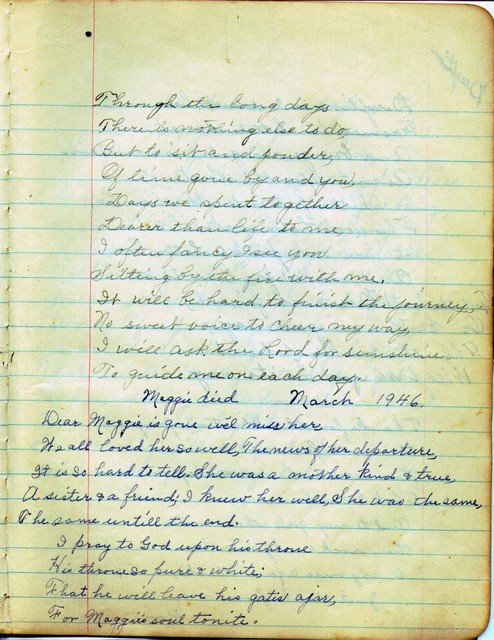 Through the long days
There is nothing else to do,
But to sit and ponder,
Of time gone by and you,
Days we spent together
Dearer than life to me
I often fancy I see you
Sitting by the fire with me.
It will be hard to finish the journey,
No sweet voice to cheer my way,
I will ask the Lord for sunshine
To guide me on each day.
Maggie died March 1946.
Dear Maggie is gone we'll miss her
We all loved her so well, The news of her departure,
It is so hard to tell. She was a mother kind & true
A sister & a friend; I knew her well, She was the same,
The same untill the end.
I pray to God upon his throne
His throne so pure & white;
That he will leave his gates ajar,
For Maggie's soul tonite.